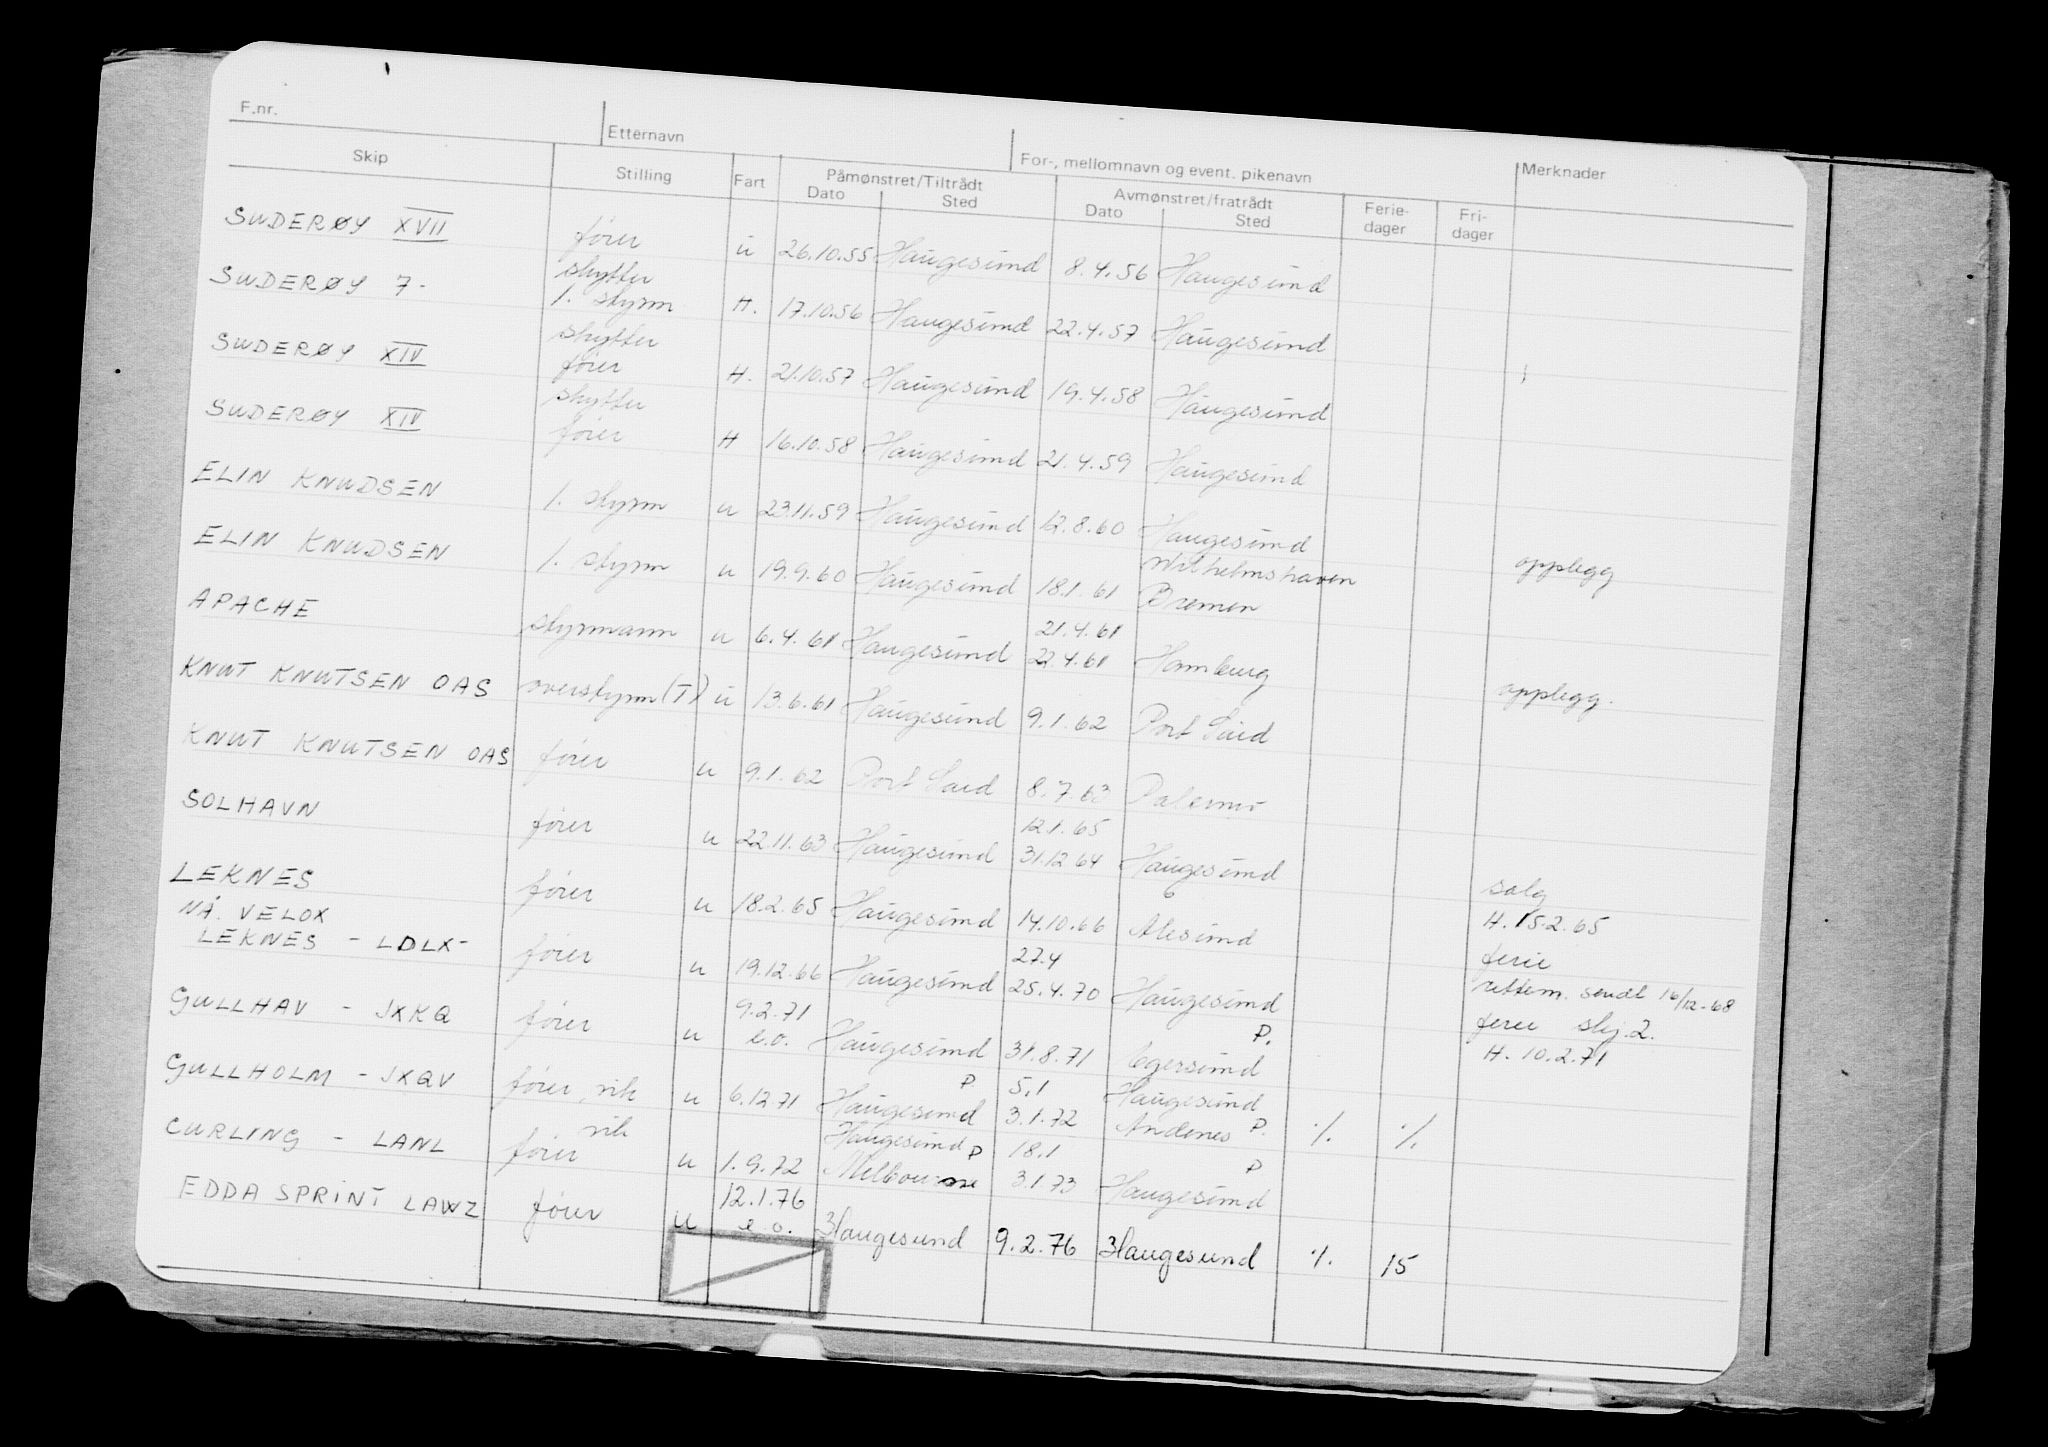 F.nr. Etternavn For-, mellomnavn og event. pikenavn Merknader
Skip Stilling Fart Påmønstret/Tiltrådt Dato Sted Avmønstret/fratrådt Dato Sted Ferie-dager Fri-dager
SUDERØY XVII fører skytter u 26.10.55 Haugesund 8.4.56 Haugesund
SUDERØY 7- 1. styrm skytter H. 17.10.56 Haugesund 22.4.57 Haugesund
SUDERØY XIV fører skytter H. 21.10.57 Haugesund 19.4.58 Haugesund
SUDERØY XIV fører H 16.10.58 Haugesund 21.4.59 Haugesund
ELIN KNUDSEN 1. styrm u 23.11.59 Haugesund 12.8.60 Haugesund opplegg
ELIN KNUDSEN 1. styrm u 19.9.60 Haugesund 18.1.61 Wilhelmshaven Bremen
APACHE styrmann u 6.4.61 Haugesund 21.4.61 22.4.61 Hamburg opplegg.
KNUT KNUTSEN OAS overstyrm (T) u 13.6.61 Haugesund 9.1.62 Port Said
KNUT KNUTSEN OAS fører u 9.1.62 Port Said 8.7.63 Palermo
SOLHAVN fører u 22.11.63 Haugesund 12.1.65 31.12.64 Haugesund salg H. 15.2.65
LEKNES fører u 18.2.65 Haugesund 14.10.66 Ålesund ferie
NÅ. VELOX
LEKNES - LDLX- fører u 19.12.66 Haugesund 27.4 25.4.70 Haugesund rettem. sendt 16/12-68 ferie skj.2.
GULLHAV - JXKQ fører u 9.2.71 e.o. Haugesund 31.8.71 Egersund P. H. 10.2.71
GULLHOLM - JXQV fører, vik u 6.12.71 Haugesund P 5.1 3.1.72 Haugesund Andenes P. % %
CURLING - LANL vik fører u 1.9.72 Haugesund P Melbourne 18.1 3.1.73 Haugesund P
EDDA SPRINT LAWZ fører u 12.1.76 e.o. Haugesund 9.2.76 Haugesund % 15